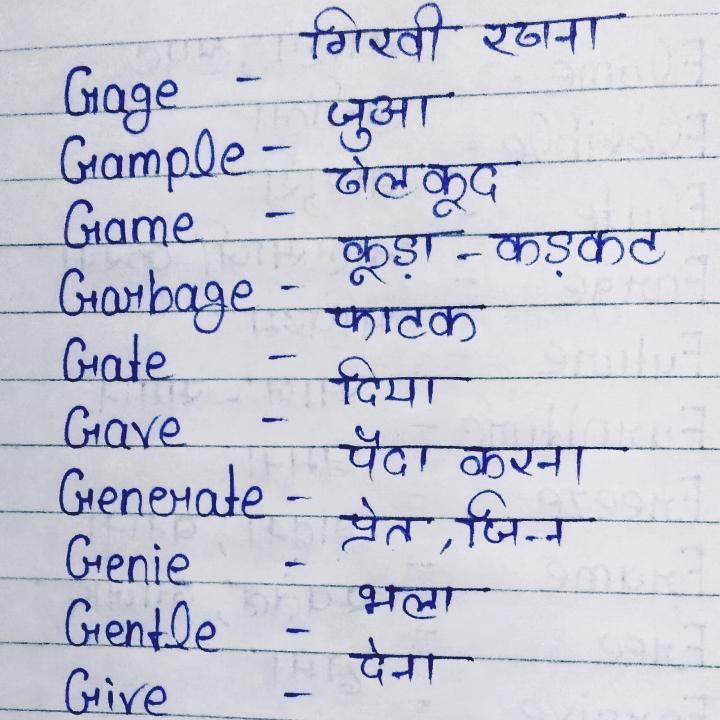 Gage - गिरवी रखना
Gample - जुआ
Game - खेलकूद
Garbage - कूड़ा - कड़कट
Gate - फाटक
Gave - दिया
Generate - पैदा करना
Genie - प्रेत, जिन्न
Gentle - भला
Give - देना